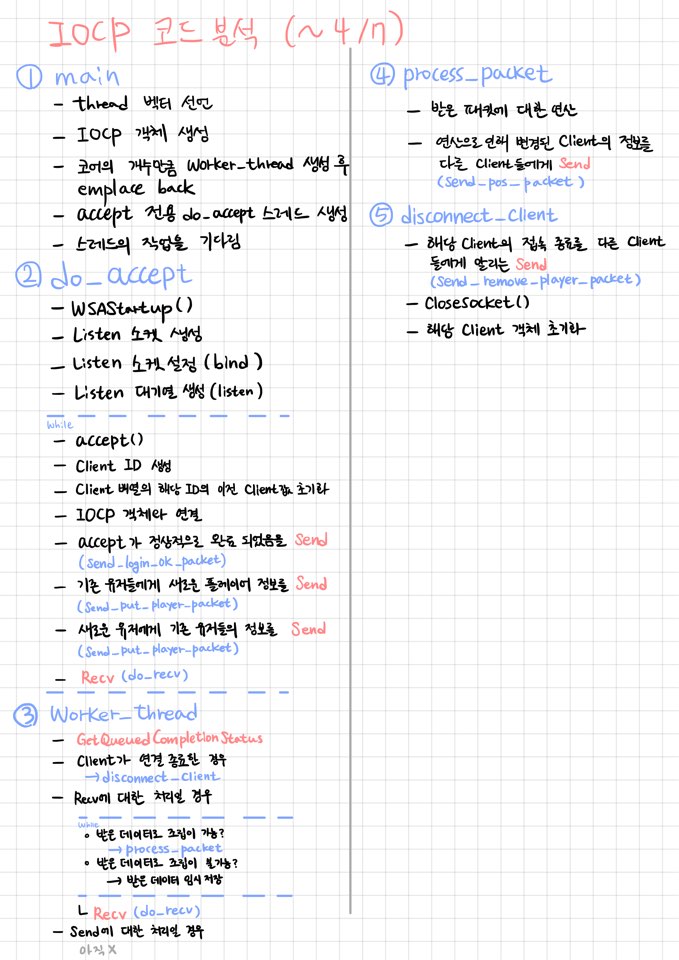 IOCP 코드 분석 (~4/17)
① main
- thread 벡터 선언
- IOCP 객체 생성
- 코어의 개수만큼 Worker_thread 생성 후
emplace back
- accept 전용 do_accept 스레드 생성
- 스레드의 작업을 기다림
② do_accept
- WSAStartup()
- Listen 소켓 생성
- Listen 소켓 설정 (bind)
- Listen 대기열 생성 (listen)
while
- accept()
- Client ID 생성
- Client 배열의 해당 ID의 이전 Client값 초기화
- IOCP 객체와 연결
- accept가 정상적으로 완료 되었음을 Send
(Send_login_ok_packet)
- 기존 유저들에게 새로운 플레이어 정보를 Send
(Send_put_player_packet)
- 새로운 유저에게 기존 유저들의 정보를 Send
(Send_put_player_packet)
- Recv (do_recv)
③ Worker_thread
- GetQueuedCompletionStatus
- Client가 연결 종료한 경우
→ disconnect_client
- Recv에 대한 처리일 경우
while
∘ 받은 데이터로 조립이 가능?
→ process_packet
∘ 받은 데이터로 조립이 불가능?
→ 받은 데이터 임시 저장
└ Recv (do_recv)
- Send에 대한 처리일 경우
아직 X
④ process_packet
- 받은 패킷에 대한 연산
- 연산으로 인해 변경된 Client의 정보를
다른 Client들에게 Send
(Send_pos_packet)
⑤ disconnect_client
- 해당 Client의 접속 종료를 다른 Client
들에게 알리는 Send
(Send_remove_player_packet)
- CloseSocket()
- 해당 Client 객체 초기화